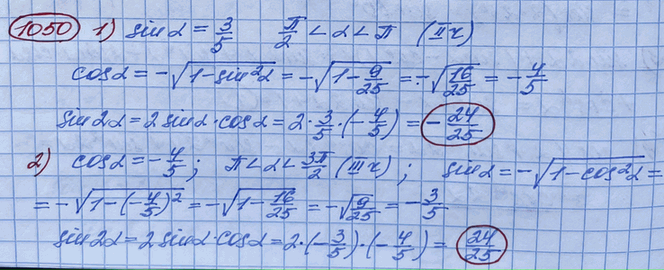 1050 1) sin α = 3/5 π/2 < α < π (II ч)
cos α = -√(1-sin²α) = -√(1-9/25) = -√(16/25) = -4/5
sin 2α = 2 sin α · cos α = 2 · 3/5 · (-4/5) = -24/25
2) cos α = -4/5 ; π < α < 3π/2 (III ч) ; sin α = -√(1-cos²α) =
= -√(1-(-4/5)²) = -√(1-16/25) = -√(9/25) = -3/5
sin 2α = 2 sin α · cos α = 2 · (-3/5) · (-4/5) = 24/25